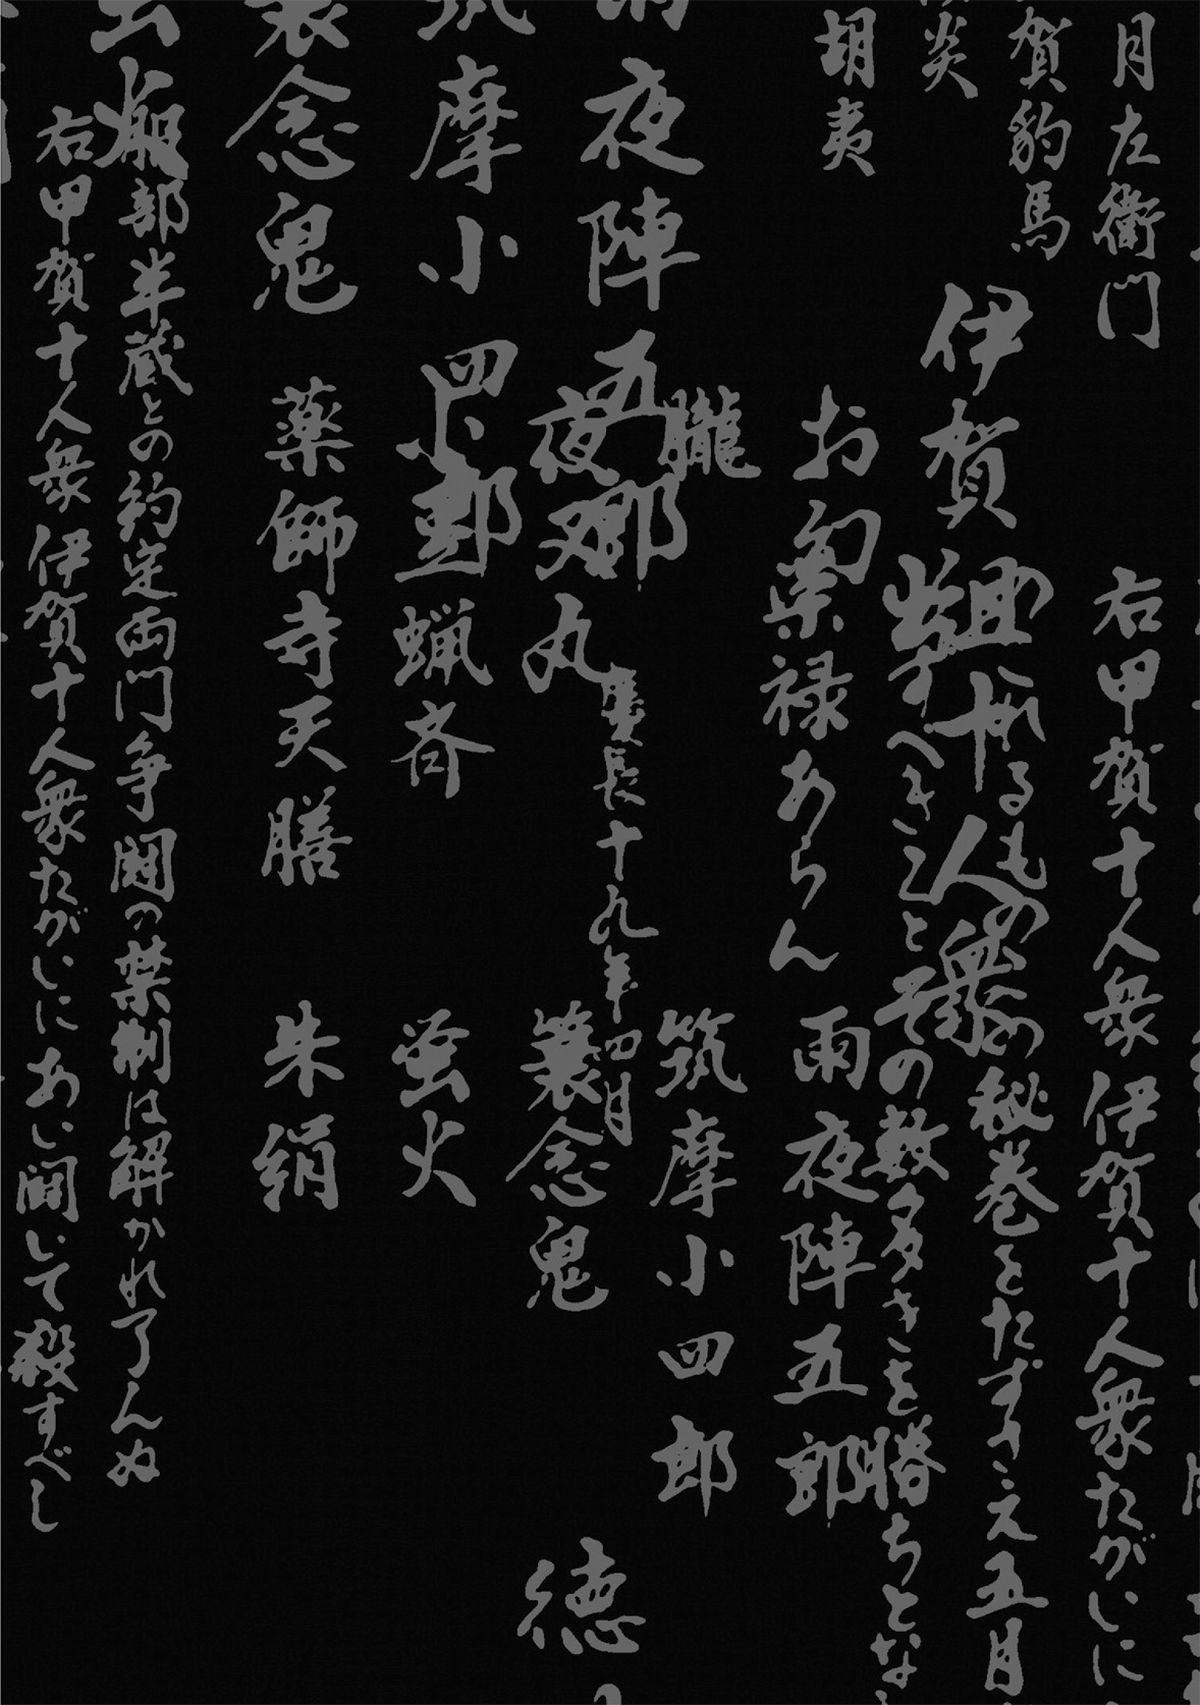 月左衛門
賀豹馬
炎
胡夷
右甲賀十人衆伊賀十人衆たがいに
伊賀組十人衆
るもの
の秘巻をたずさえ五月
すべきことその数多きを勝ちとな
お
禄あらん
雨夜陣五郎
朧
筑摩小四郎
夜陣五郎
慶長十九年四月
夜叉丸
蓑念鬼
徳
摩小四郎
小豆蝋斉
蛍火
念鬼
薬師寺天膳
朱絹
服部半蔵との約定両門争闘の禁制は解かれ了んぬ
右甲賀十人衆伊賀十人衆たがいにあい闘いて殺すべし